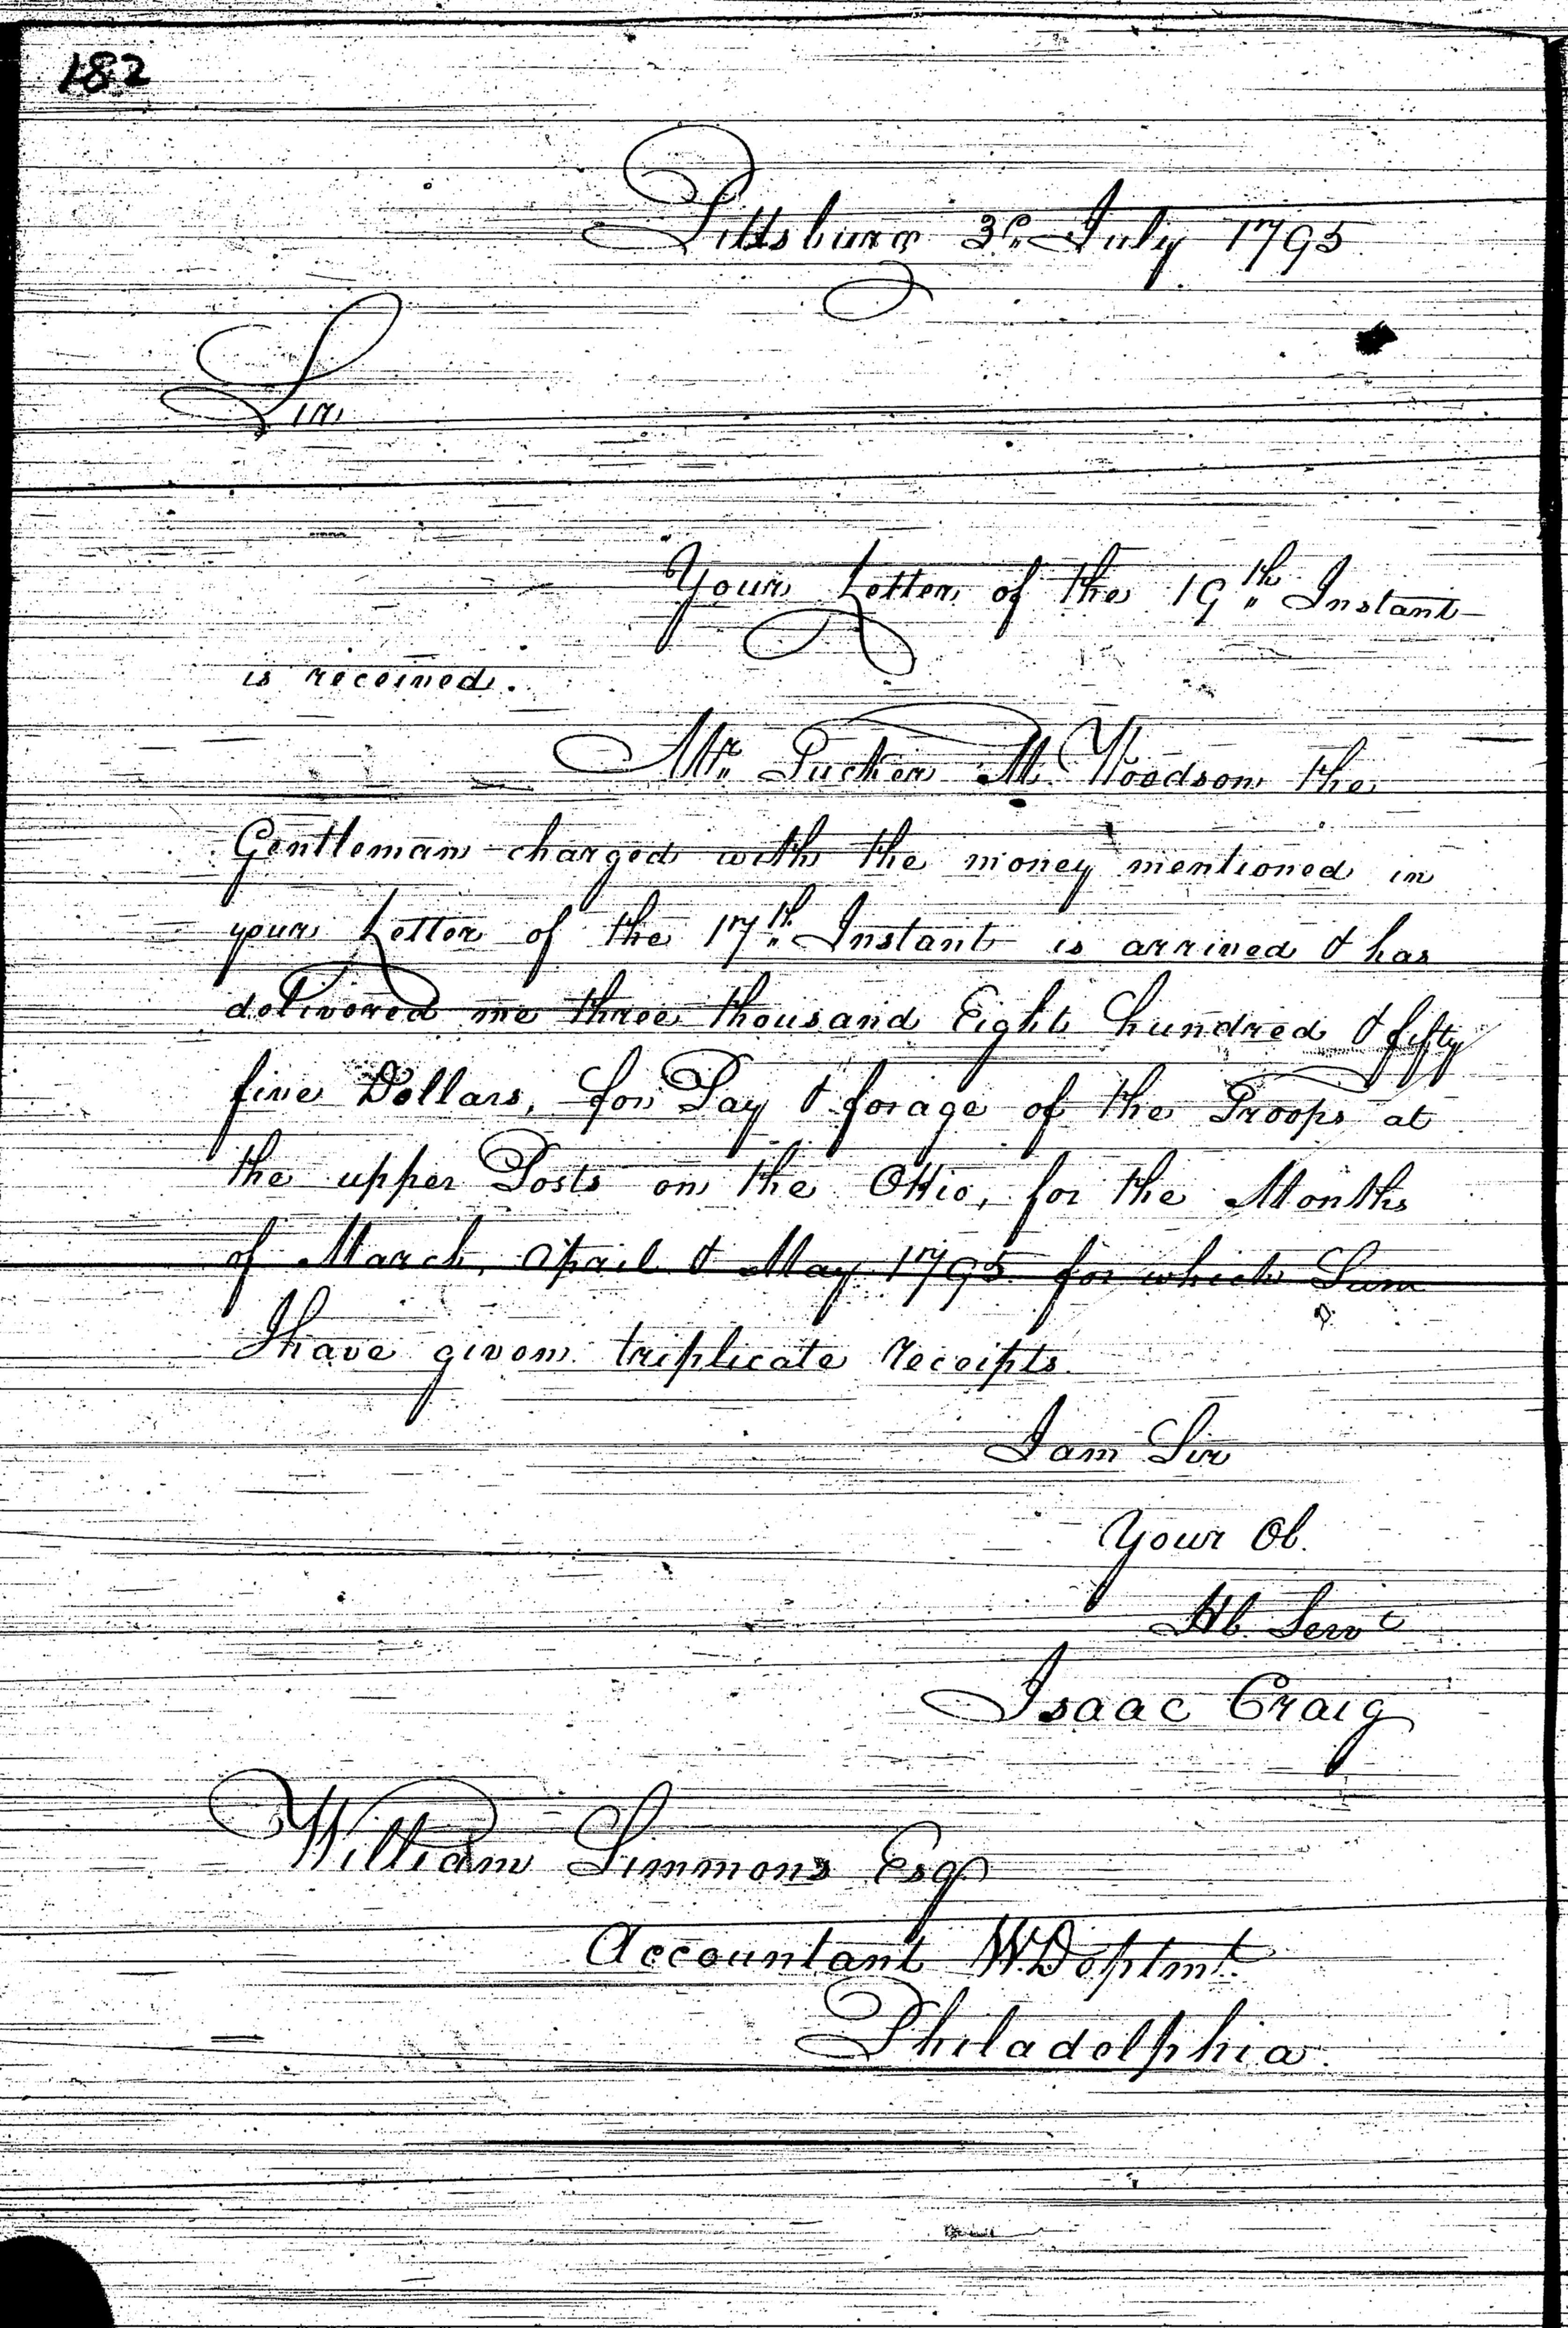 182
Pittsburg 3d July 1795
Sir
Your Letter of the 19th Instant
is received.
Mr Tucker M. Woodson the
Gentleman charged with the money mentioned in
your Letter of the 17th Instant is arrived & has
delivered me three thousand Eight hundred & fifty
five Dollars, for Pay & forage of the Troops at
the upper Posts on the Ohio, for the Months
of March, April & May 1795 for which Sum
I have given triplicate receipts.
I am Sir
Your Ob.
Hb. Servt
Isaac Craig
William Simmons Esqr
Accountant W. Deptmt.
Philadelphia.